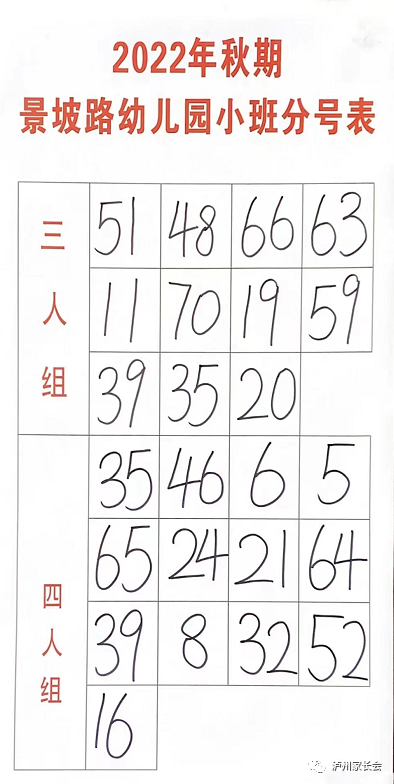 2022年秋期
景坡路幼儿园小班分号表
三人组
51 48 66 63
11 70 19 59
39 35 20
四人组
35 46 6 5
65 24 21 64
39 8 32 52
16
泸州家长会